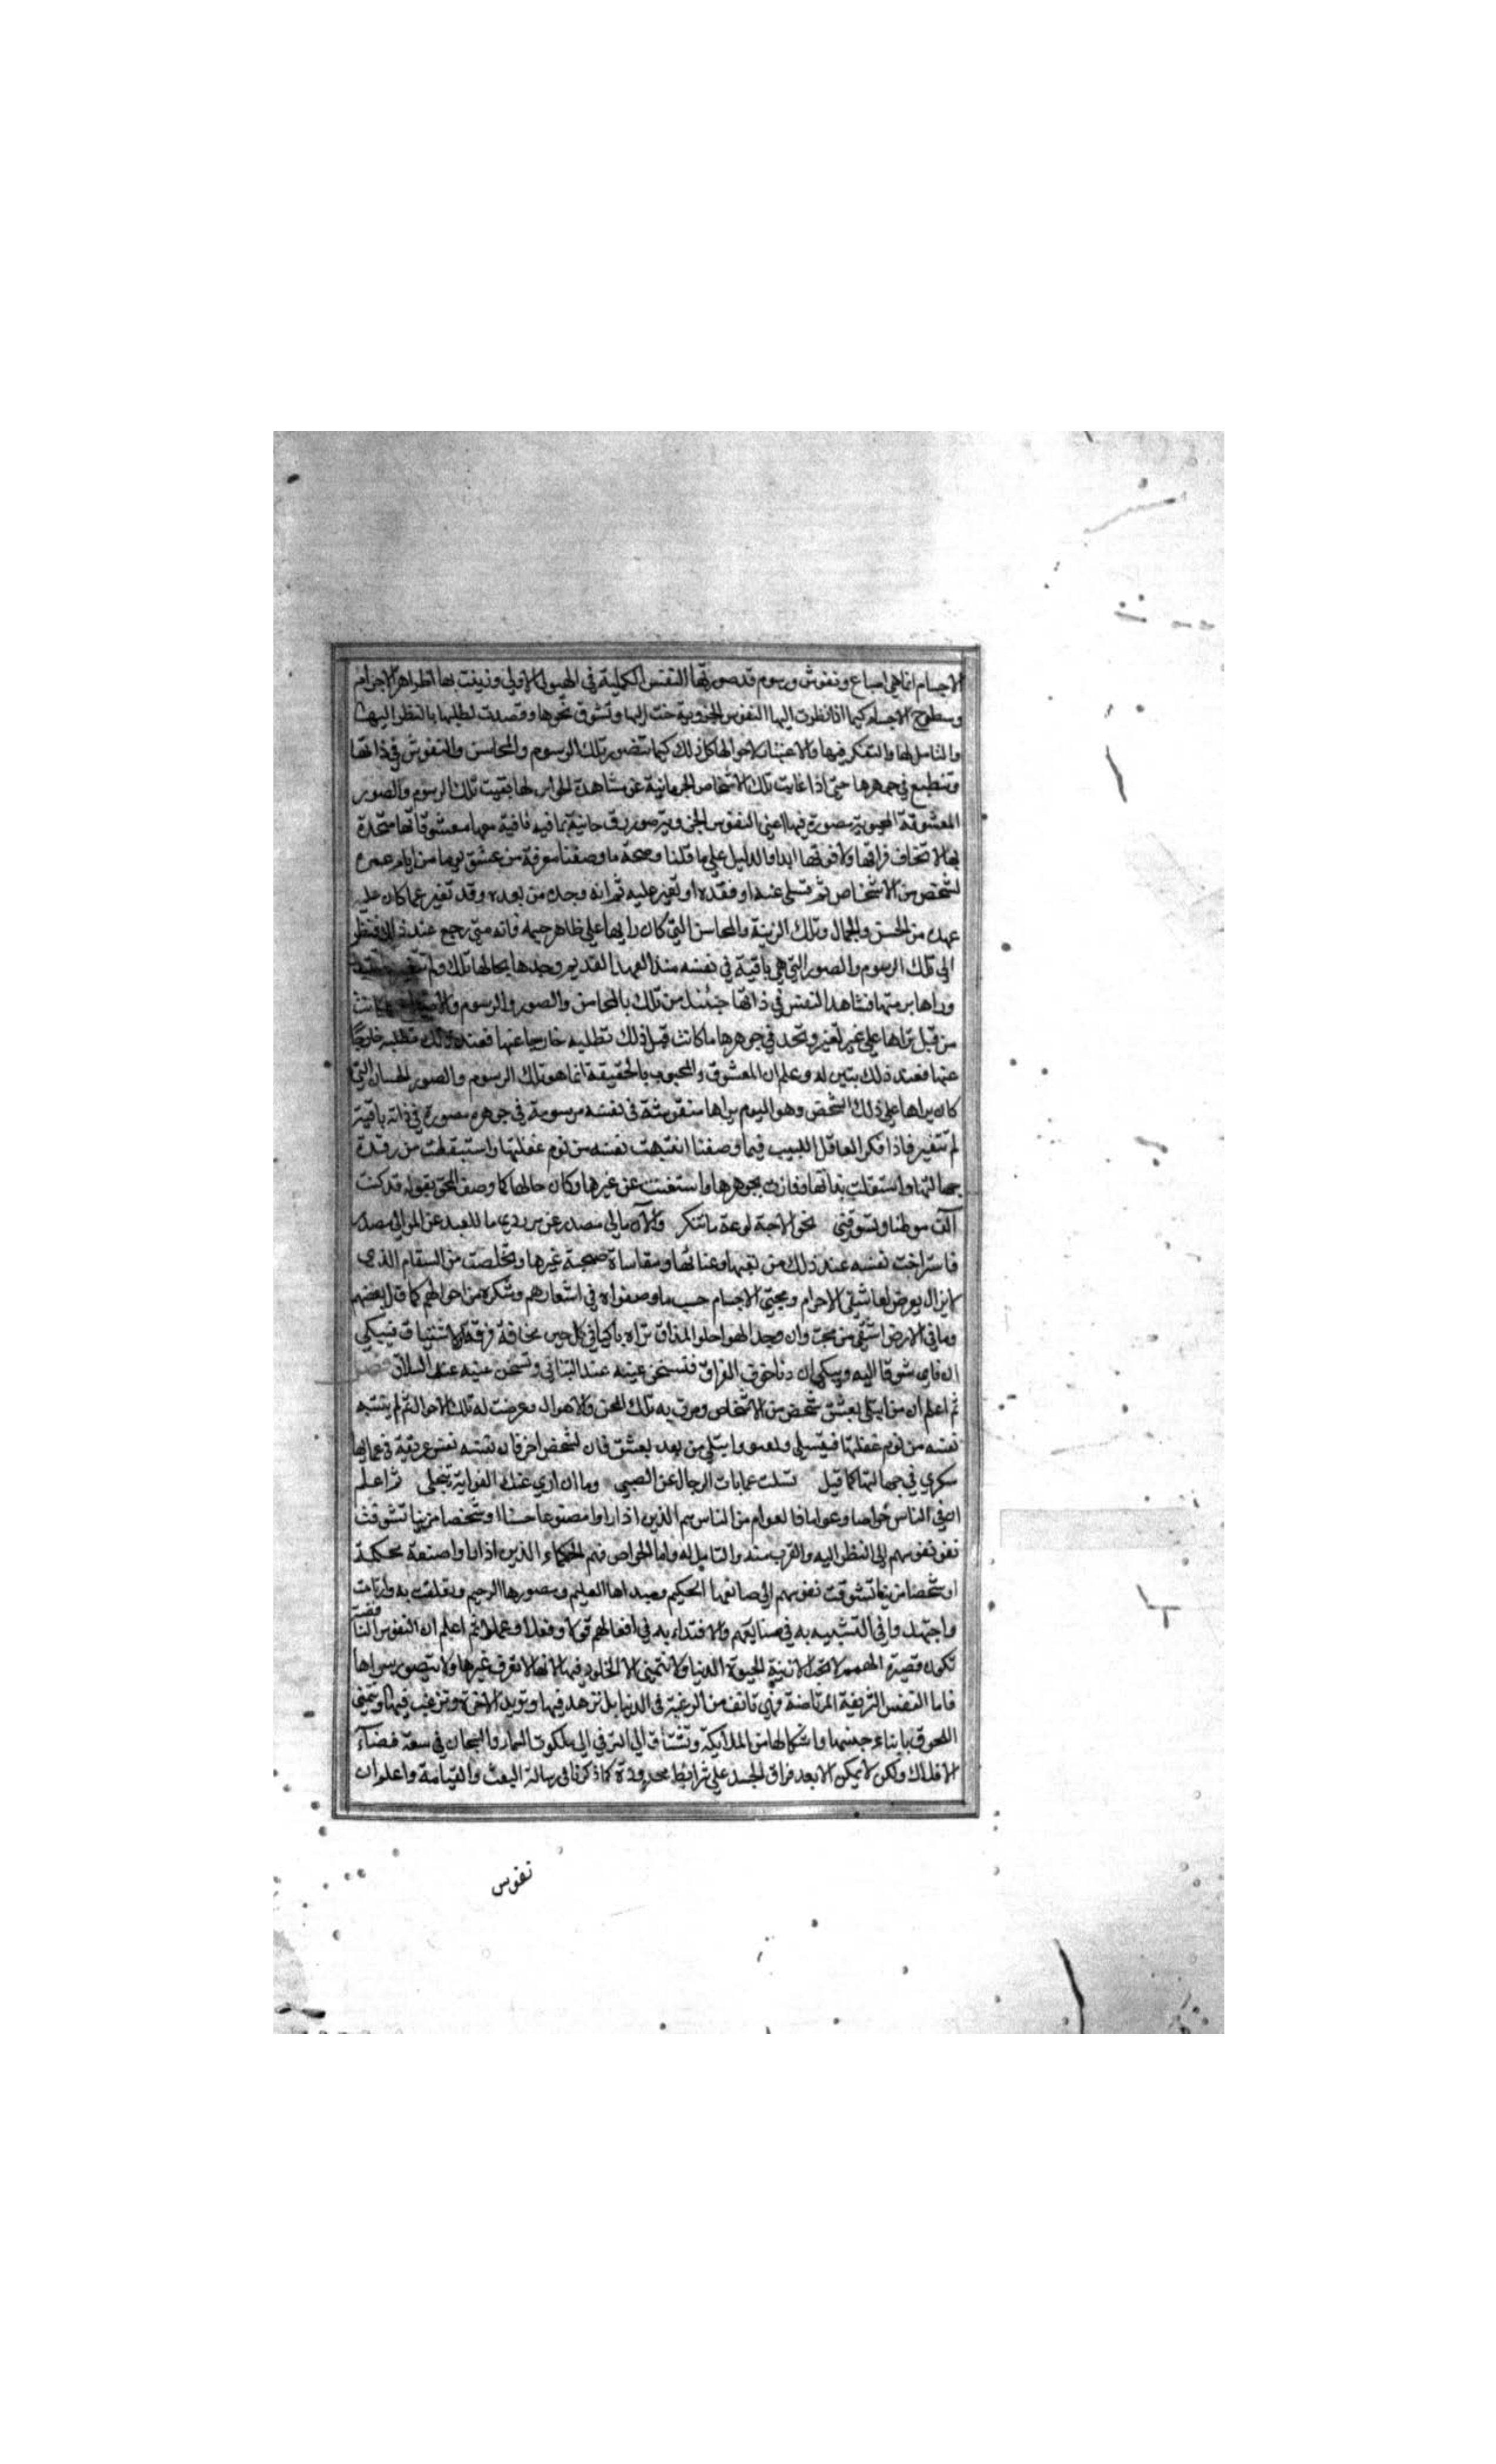 الاجسام انما هي اصباغ ونقوش ورسوم قد صورتها النفس الكلية في الهيولى الاولى وزينت بها ظواهر الاجرام
وسطوح الاجسام كيما اذا نظرت اليها النفوس الجزوية حنت اليها وتشوق نحوها وقصدت لطلبها بالنظر اليها
والتامل لها والتفكر فيها والاعتبار لاحوالها كل ذلك كيما تتصور تلك الرسوم والمحاسن والنقوش في ذاتها
وتنطبع في جوهرها حتى اذا غابت تلك الاشخاص الجرمانية عن مشاهدة الحواس لها بقيت تلك الرسوم والصور
المعشوقة المحبوبة مصورة فيها اعني النفوس الجزوية صور روحانية معشوقاتها متحدة
بها لا تخاف فراقها ولا فوتها ابدا والدليل على ما قلنا وصحة ما وصفنا معرفة من عشق يوما من ايام عمره
لشخص من الاشخاص ثم تسلى عنه او فقده او تغير عليه ثم انه وجده من بعده وقد تغير عما كان عليه
عهده من الحسن والجمال وتلك الزينة والمحاسن التي كان رايها على ظاهر جسمه فانه متى رجع عند ذلك فنظر
الى تلك الرسوم والصور التي هي باقية في نفسه منذ العهد القديم وجدها بحالها تلك ولم
وراها برمتها فشاهد النفس في ذاتها حينئذ من تلك بالمحاسن والصور والرسوم كانت
من قبل تراها على غير تغير وتجد في جوهرها ما كانت قبل ذلك تطلبه خارجا عنها فعند ذلك تطلبه خارجا
عنها فعند ذلك يتبين له وعلم ان المعشوق والمحبوب بالحقيقة انما هو تلك الرسوم والصور الحسان التي
كان يراها على ذلك الشخص وهو اليوم يراها منقوشة في نفسه مرسومة في جوهره مصورة في ذاته باقية
لم تتغير فاذا فكر العاقل اللبيب فيما وصفنا انتبهت نفسه من نوم غفلتها واستيقظت من رقدة
جهالتها واستقلت بذاتها وفازت بجوهرها واستغنت عن غيرها وكان حالها كما وصف المحق بقوله قد كنت
آلف موطنا ويشوقني نحو الاحبة لوعة ما تنكر والآن مالي مصدر عن موردي ما للعبد عن الموالي مصدر
فاستراحت نفسه عند ذلك من تعبها وعنائها ومقاساة صحبة غيرها وتخلصت من السقام الذي
لا يزال يعرض لعاشقي الاجرام ومحبي الاجسام حسب ما وصفوا في اشعارهم وشكره من احوالهم كما قال بعضهم
وما في الارض اشقى من محب وان وجد الهوا حلوا المذاق تراه باكيا في كل حين مخافة فرقة او لاشتياق فيبكي
ان ناى شوقا اليه ويبكي ان دنا خوف الفراق فتسخن عينه عند التنائي وتسخن عينه عند التلاق فصل
ثم اعلم ان من ابتلي بعشق شخص من الاشخاص ومرت به تلك المحن والاهوال وعرضت له تلك الاحوال ثم لم ينتبه
نفسه من نوم غفلتها فيتسلى وابتلي من بعد بعشق ثان لشخص اخر فان نفسه نفس غريقة في عمائها
سكري في جهالتها كما قيل تسلت عمايات الرجال عن الصبى وما ان ارى عنك الغواية تنجلي ثم اعلم
ان في الناس خواصا وعواما فالعوام من الناس هم الذين اذا راوا مصنوعا حسنا او شخصا مزينا تشوقت
نفوسهم الى النظر اليه والقرب منه والتامل له واما الخواص فهم الحكماء الذين اذا راوا صنعة محكمة
او شخصا مزينا تشوقت نفوسهم الى صانعها الحكيم ومبداها العليم ومصورها الرحيم وتعلقت به وارتاحت
واجتهدوا في التشبه به في صنايعهم والاقتداء به في افعالهم قولا وفعلا وعملا ثم اعلم ان النفوس الناقصة
تكون قصيرة الهمم لا تحب الا زينة الحيوة الدنيا ولا تتمنى الا الخلود فيها لانها لا تعرف غيرها ولا تتصور سواها
فاما النفس الشريفة المرتاضة فهي تانف من الرغبة في الدنيا بل تزهد فيها وتريد الاخرة وترغب فيها وتتمنى
اللحوق بابناء جنسها واشكالها من الملايكة وتشتاق الى الترقي الى ملكوت السماء والسيحان في سعة فضاء
الافلاك ولكن لا يمكن الا بعد فراق الجسد على شرائط محدودة كما ذكرنا في رسالة البعث والقيامة واعلم ان
نفوس